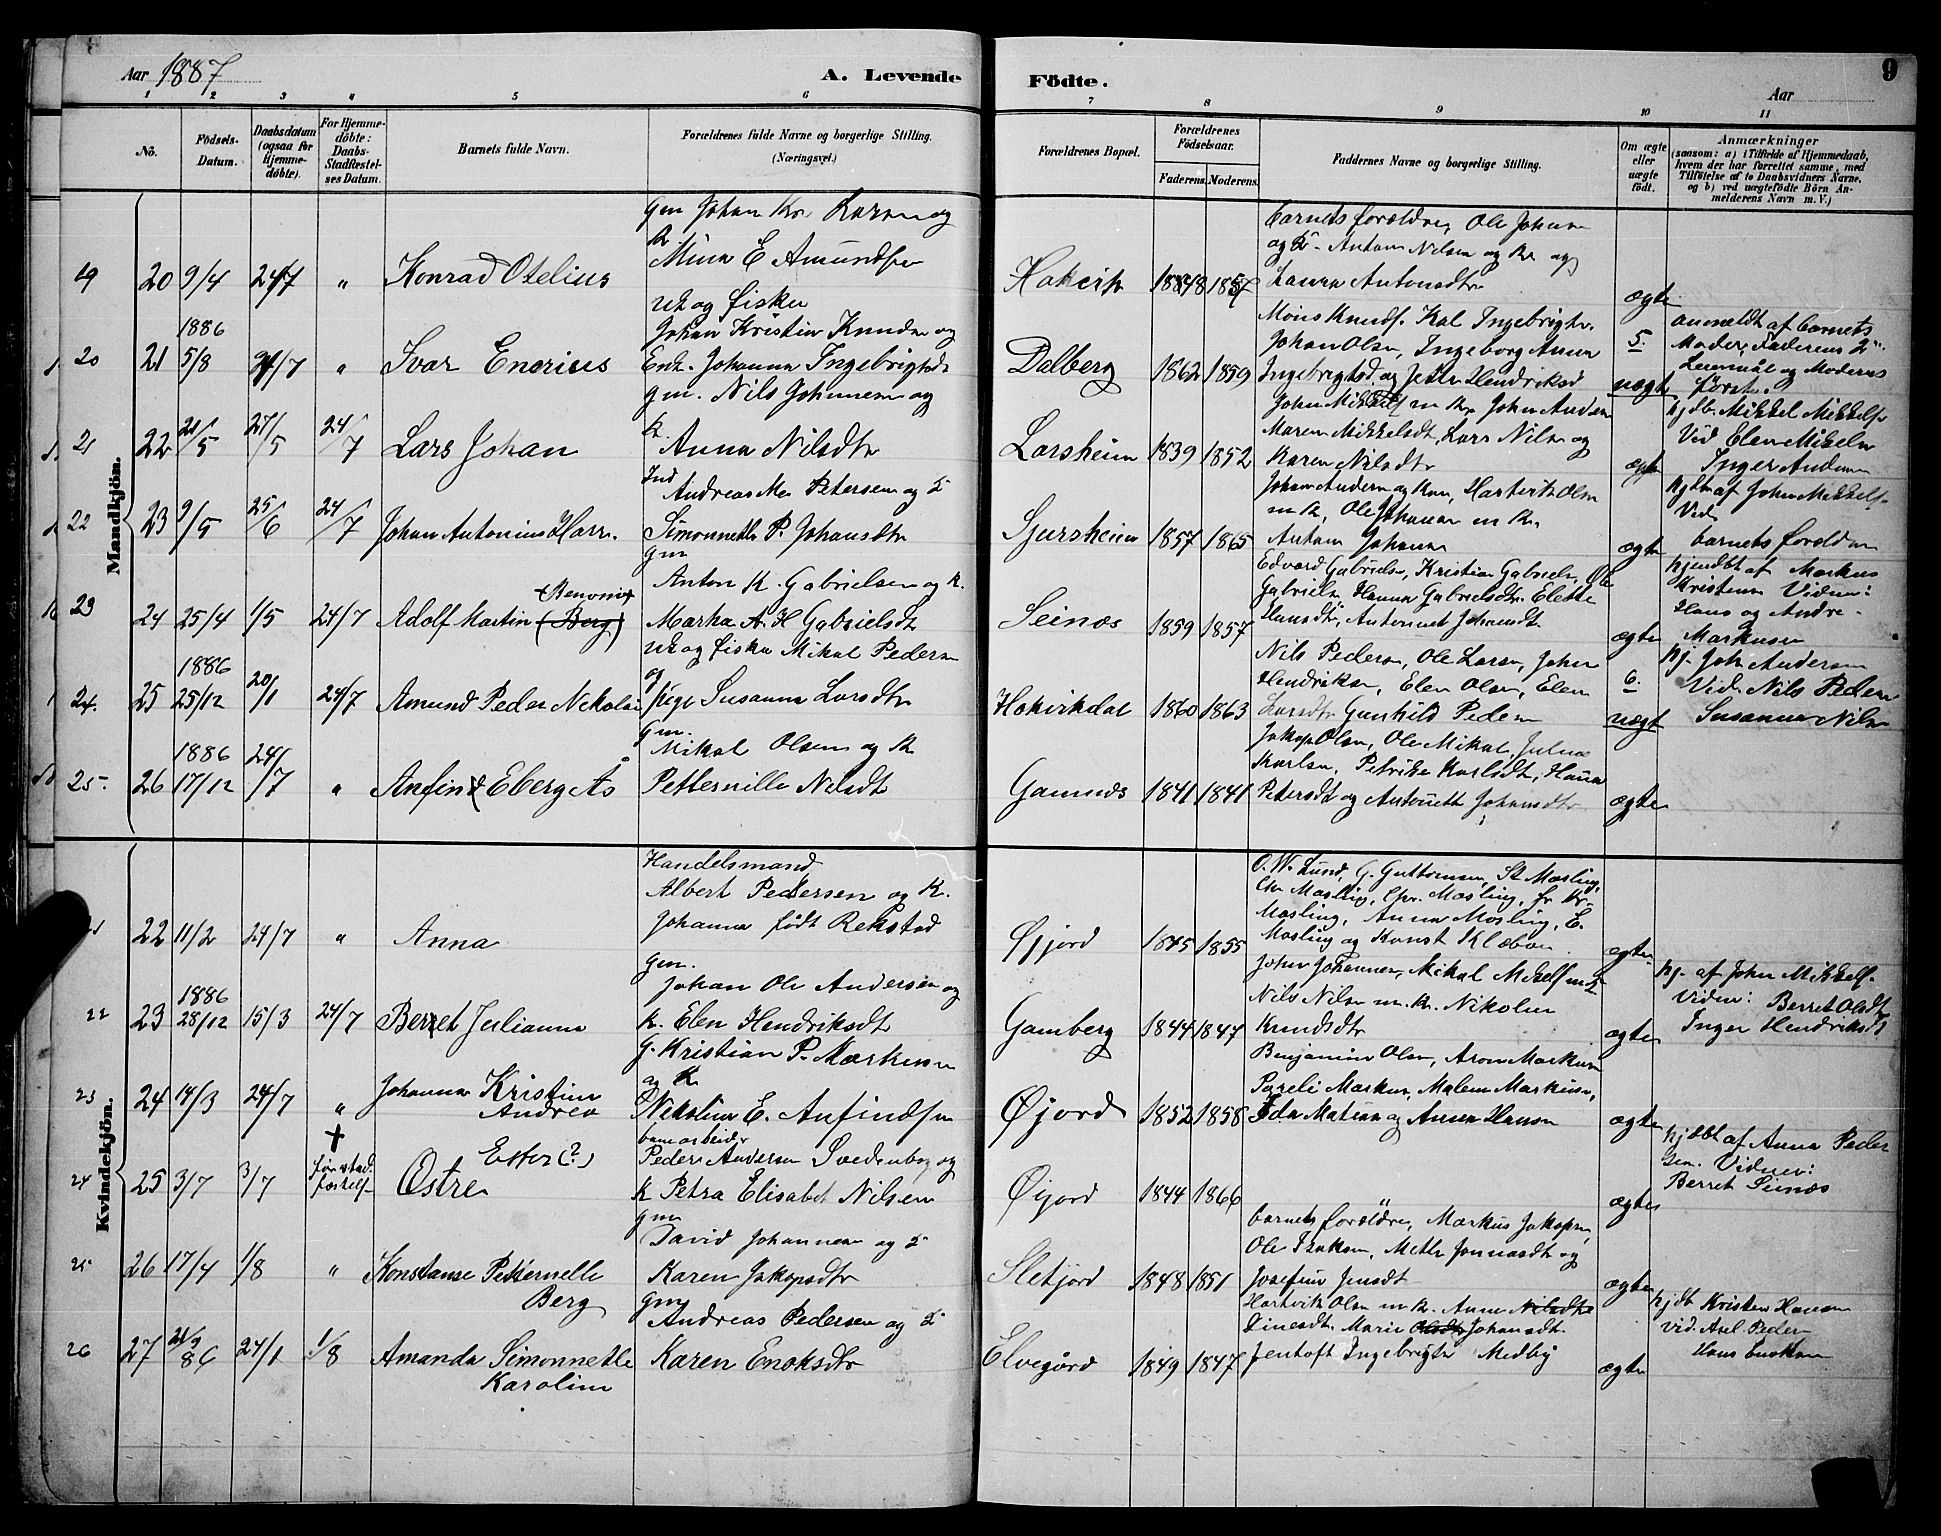 Aar 1887
A. Levende
Födte.
9
Aar
1 2 3 4 5 6 7 8 9 10 11
No.
Födsels-Datum.
Daabsdatum (ogsaa for Hjemme-döbte).
For Hjemme-döbte: Daabs-Stadfæstel-ses Datum.
Barnets fulde Navn.
Forældrenes fulde Navne og borgerlige Stilling.
(Næringsvei.)
Forældrenes Bopæl.
Forældrenes Födselsaar.
Faderens. Moderens.
Faddernes Navne og borgerlige Stilling.
Om ægte eller uægte födt.
Anmærkninger
(saasom: a) i Tilfælde af Hjemmedaab, hvem der har forrettet samme, med Tilföielse af to Daabsvidners Navne, og b) ved uægtefödte Börn An-melderens Navn m. V.)
Mandkjön.
19 20 9/4 24/7 " Konrad Otelius
gm Johan Kr. Larsen og
K. Mina E Amundsen
1848 1857
Barnets forældre, Ole Johnsen
og K. Anton Nilsen og K. og
Laura Antonsdtr
ægte
20 21 1886 5/8 24/7 " Ivar Enerius
uk og fisker
Johan Kristian Knudsen og
Enk. Johanna Ingebrigtsdtr
Dalberg 1862 1859
Mons Knuds. Kal Ingebrigts.
Johan Olsen, Ingeborg Anna
Ingebrigtsd. og Hendriksd
5. uægte
anmeldt af barnets
Moder, Faderens 2det
Leiermål og Moderens
første.
21 22 21/5 27/5 24/7 Lars Johan
gm. Nils Johnsen og
K. Anna Nilsdtr
Larsheim 1839 1852
John Mikkels m K. John Andersen
Maren Mikkelsdt, Lars Nilsen og
Karen Nilsdtr
ægte
hjdb. Mikkel Mikkels
Vid Elen
Inger Andersen
22 23 9/5 25/6 24/7 Johan Antonius Harr.
Ind
Andreas M. Petersen og K
Simonnette P. Johansdtr
Sjursheim 1857 1865
Johan Andersen og Kone, Hartvik Olsen
m K, Ole Johansen m K.
Anton Johansen
ægte
hjdbt af John Mikkels.
Vid.
barnets forældre
23 24 25/4 1/5 24/7 Adolf Martin (Berg) Benoni
gm
Anton K. Gabrielsen og K.
Martha A. H Gabrielsdt
Seinæs 1859 1857
Edvard Gabriels, Kristian Gabriels, Ole
Gabriels, Hanna Gabrielsdtr. Elette
Hansdtr, Antonet Johansdt.
ægte
hjemdbt af Markus
Kristensen Vidner:
Hans og Andre.
Markusen
24. 25 1886 25/12 20/1 24/7 Amund Peder Nikolai
uk og fisker Mikal Pedersen
og
pige Susanna Larsdtr
Hokirkdal 1860 1863
Nils Pedersen, Ole Larsen, John
Hendriksen, Elen Olsen, Elen
Larsdtr Gunhild Pedersen
6. uægte
hj. Joh Andersen
Vid. Nils Pedersen
Susanna Nilsen
25. 26 1886 17/12 24/7 " Anfind Eberg Ås
gm.
Mikal Olsen og K
Petternille Nilsdt
Gamnæs 1841 1841
Jakop Olsen, Ole Mikal, Julius
Karlsen, Petrike Karlsdt, Hanna
Petersdt og Antonette Johansdtr
ægte
Kvindekjön.
22 11/2 24/7 " Anna
Handelsmand
Albert Pedersen og K.
Johanna født Rekstad
Øjjord 1845 1855
O. W. Lund, G. Guttormsen, St Mosling,
Chr Mosling, Chr. Mosling, fr Kr.
Mosling, Anna Mosling, E.
Mosling og Konst Klæboe
ægte
22 23 1886 28/12 15/3 24/7 Berret Julianna
gm.
Johan Ole Andersen og
K. Elen Hendriksdt
Gamberg 1844 1847
John Johannesen, Mikal Mikkels m K
Nils Nilsen m. K. Nikoline
Knudsdtr
ægte
hj. af John Mikkels.
Vidner: Berret Olsdtr
Inger Hendriksdt
23 24 14/3 24/7 " Johanna Kristine
Andrea
g. Kristian P. Markusen
og K
Nikoline E. Anfindsen
Øjord 1852 1858
Benjamin Olsen, Aron Markusen
Pareli Markus, Malene Markusen,
Ida Matias og Anna Hansen
ægte
24 25 3/7 3/7 † før stad-fæstels- Østre Ester (?)
banearbeider
Peder Andersen Svedenborg og
K Petra Elisabet Nilsen
Øijord 1844 1866
ægte
hjdbt af Anna Peder
Gm. Vidner:
Berret Seinæs
25 26 17/4 1/8 " Konstanse Petternelle
Berg
gm
David Johannesen og K
Karen Jakopsdtr
Sletjord 1848 1851
barnets forældre, Markus Jakopsen,
Ole Isaksen, Mette Jonnasdt og
Josefine Jensdt
ægte
26 27 21/9 86 24/1 1/8 Amanda Simonnette
Karoline
gm
Andreas Pedersen og K
Karen Enoksdtr
Elvegård 1849 1847
Hartvik Olsen m K. Anne Nilsdtr
Dinesdt. Marie Olsdtr Johansdt.
Jentoft Ingebrigts Medby
ægte
hjdb Kristen Hansen
Vid. Axel Pedersen
Hans Enoksen